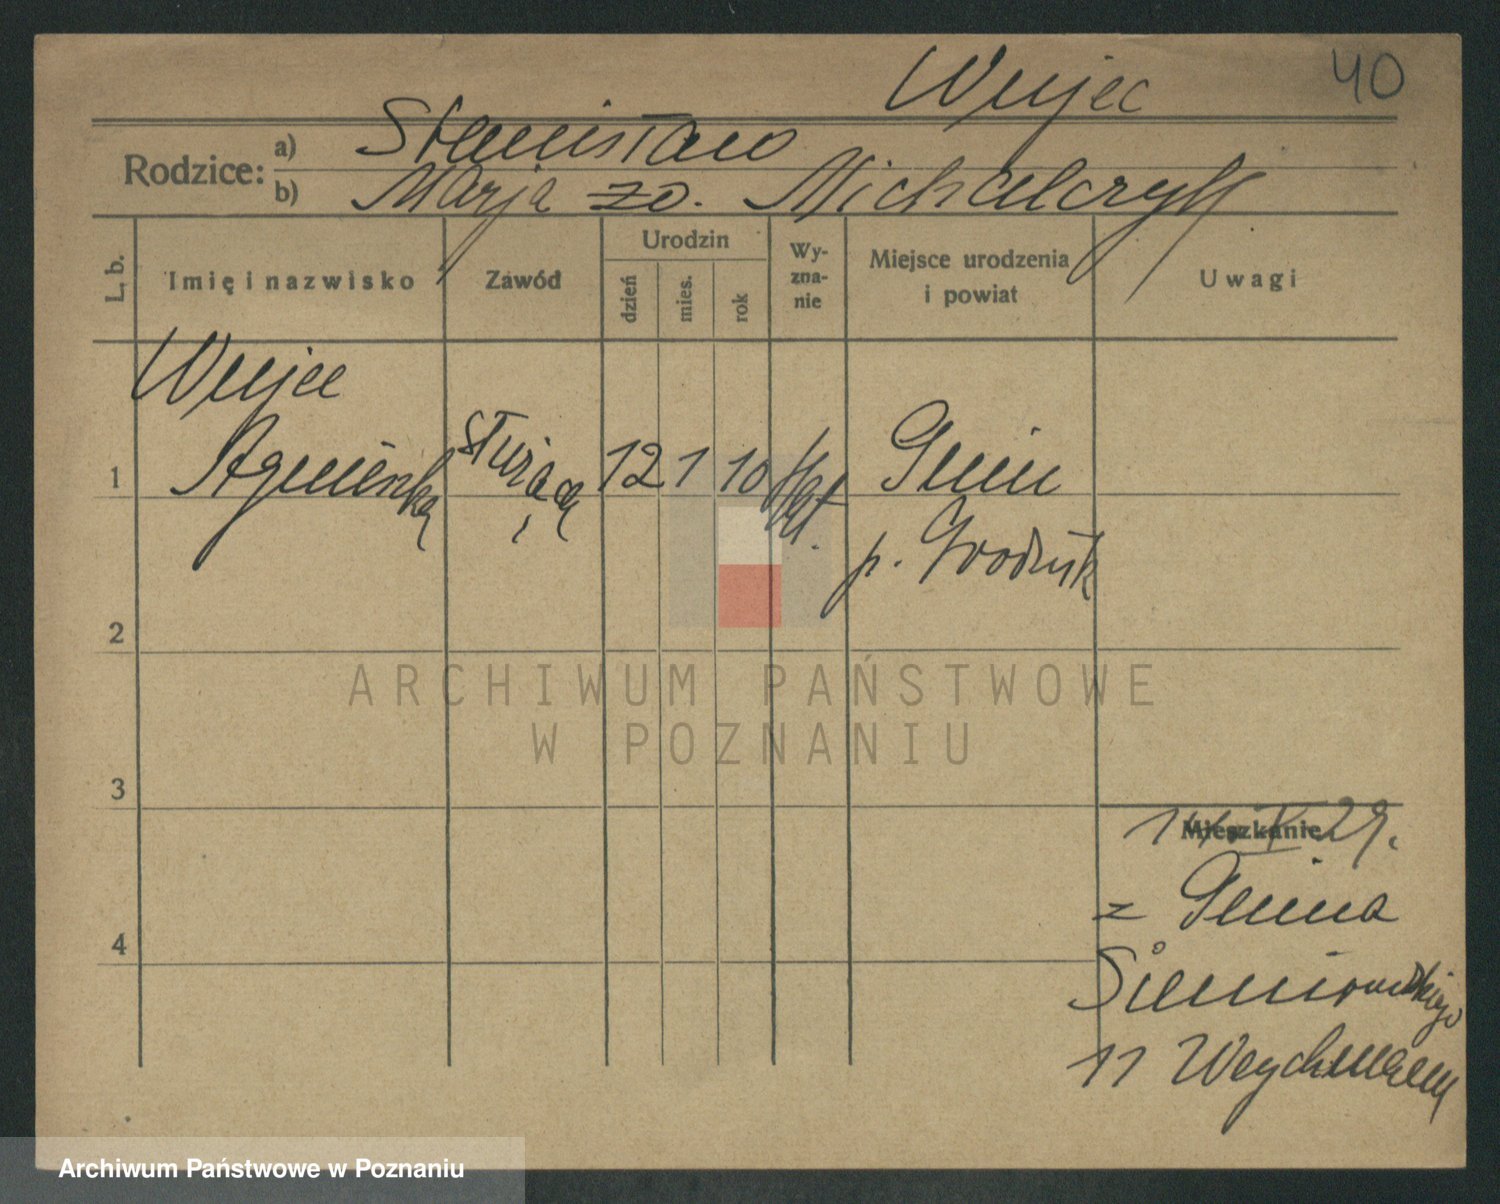 Wujec 40
Rodzice: a) Stanisław
b) Marja zd. Michalczyk
L. b. Imię i nazwisko Zawód Urodzin dzień mies. rok Wy-zna-nie Miejsce urodzenia i powiat Uwagi
Wujec
1 Agnieszka służąca 12 1 10 kat. Gnin
p. Grodzisk
2
ARCHIWUM PAŃSTWOWE
W POZNANIU
3
Mieszkanie 29.
z Gnina
4
Siemiradzkiego
11 Weychmann
Archiwum Państwowe w Poznaniu